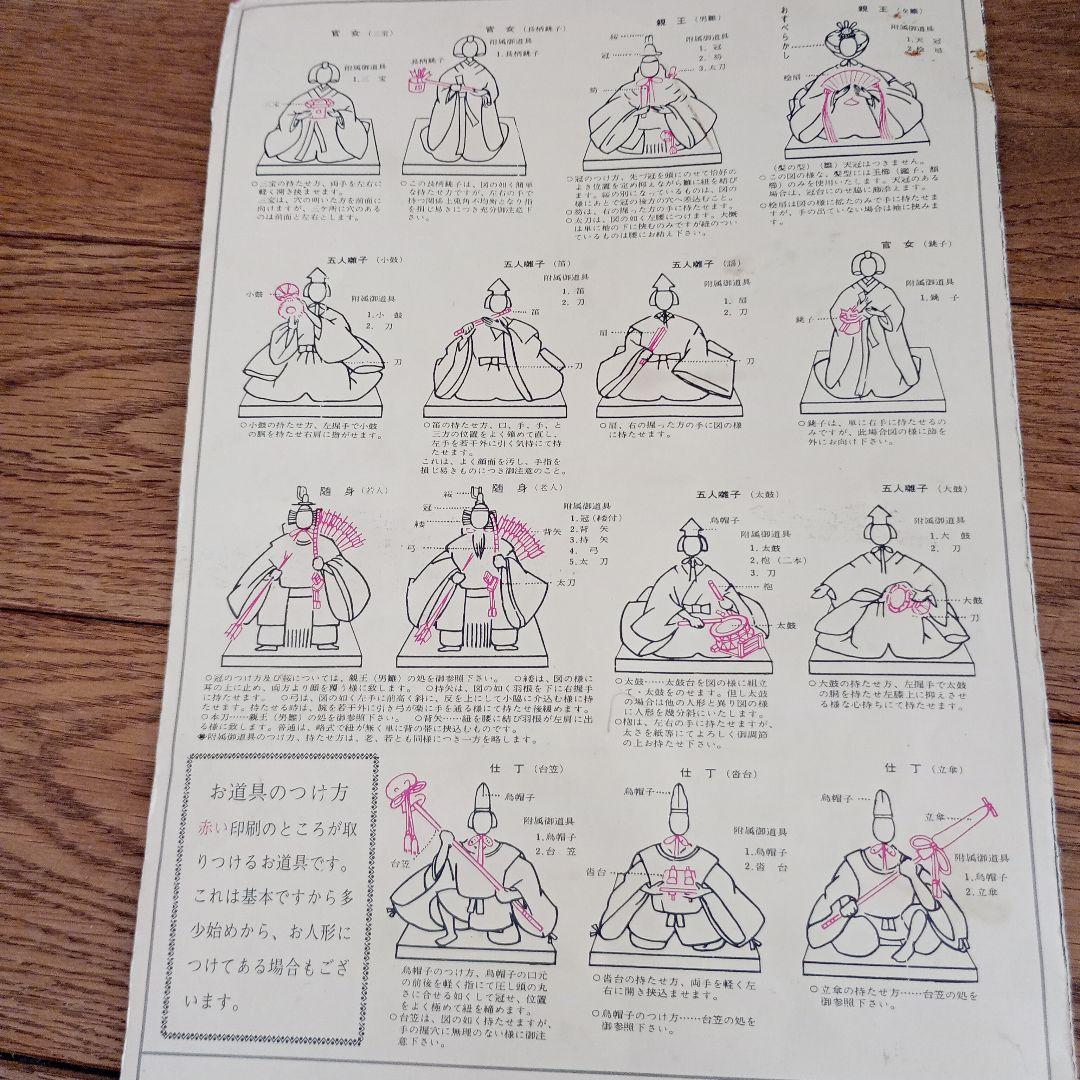 官女(三宝)
附属御道具
1.三宝
三宝
○三宝の持たせ方、両手を左右に
軽く開き挟ませます。
三宝は、穴の明いた方を前面に
向けますが、三ケ所に穴のある
のは前面と左右とします。
官女(長柄銚子)
附属御道具
1.長柄銚子
長柄銚子
○この長柄銚子は、図の如く簡単
な持たせ方ですが、左右の手で
持つ関係上兎角不均衡となり指
を損じ易きにつき充分御注意下
さい。
親王(男雛)
附属御道具
1.冠
2.笏
3.太刀
冠
笏
○冠のつけ方、先づ冠を頭にのせて恰好の
よき位置を定め抑えながら髄に紐を結び
ます。桜の別になっているものは、図の
様にあとで冠の後方の穴へ差込むこと。
○笏は、右の握った方の手に持たせます。
○太刀は、図の如く左腰につけます。大概
は単に袍の下に挟むのみですが紐のつい
ているものは腰にお結え下さい。
おすべらかし
親王(女雛)
附属御道具
1.天冠
2.桧扇
桧扇
(髪の型)(雛)天冠はつきません。
○この図の様な、髪型には玉櫛(鑑子、額
櫛)のみを使用いたします。天冠のある
場合は、冠台にのせ脇に簪添えます。
○桧扇は図の様に拡たのみで手に持たせま
すが、手の出ていない場合は袖に挟みま
す。
五人囃子(小鼓)
附属御道具
1.小鼓
2.刀
小鼓
刀
○小鼓の持たせ方、左握手で小鼓
の胴を持たせ右肩に担がせます。
五人囃子(笛)
附属御道具
1.笛
2.刀
笛
刀
○笛の持たせ方、口、手、手、と
三方の位置をよく確めて直し、
左手を若干外に引く気持にて持
たせます。
これは、よく顔面を汚し、手指を
損じ易きものにつき御注意のこと。
五人囃子(謡)
附属御道具
1.扇
2.刀
扇
刀
○扇、右の握った方の手に図の様
に持たせます。
官女(銚子)
附属御道具
1.銚子
銚子
○銚子は、単に右手に持たせるの
みですが、此場合図の様に餝を
外にお向け下さい。
随身(若人)
随身(老人)
冠
緌
弓
背矢
太刀
附属御道具
1.冠(緌付)
2.背矢
3.持矢
4.弓
5.太刀
○冠のつけ方及び桜については、親王(男雛)の処を御参照下さい。 ○緌は、図の様に
耳の上に止め、両方より頤を覆う様に致します。 ○持矢は、図の如く羽根を下に右握手
に持たせます。 ○弓は、図の如く左手に前高く斜に、反を上にして小脇に介込む様に持
たせます。持たせる時は、腕を若干外に引き弓が楽に手を通る様にて持たせ後緩めます。
○本刀……親王(男雛)の処を御参照下さい。 ○背矢……紐を腰に結び羽根が左肩に出
る様に致します。普通は、略式で紐が無く単に背の帯に挟込むものです。
附属御道具のつけ方、持たせ方は、老、若とも同様につき一方を略します。
五人囃子(太鼓)
烏帽子
附属御道具
1.太鼓
2.枹(二本)
3.刀
枹
太鼓
○太鼓……太鼓台を図の様に組立
て・太鼓をのせます。但し太鼓
の場合は他の人形と異り図の様
に人形を幾分斜にいたします。
○枹は、左右の手に持たせますが、
太さを紙等にてよろしく御調節
の上お持たせ下さい。
五人囃子(大鼓)
附属御道具
1.大鼓
2.刀
大鼓
刀
○大鼓の持たせ方、左握手で太鼓
の胴を持たせ左膝上に抑えさせ
る様な心持ちにて持たせます。
お道具のつけ方
赤い印刷のところが取
りつけるお道具です。
これは基本ですから多
少始めから、お人形に
つけてある場合もござ
います。
仕丁(台笠)
烏帽子
附属御道具
1.烏帽子
2.台笠
台笠
烏帽子のつけ方、烏帽子の口元
の前後を軽く指にて圧し頭の丸
さに合せる如くして冠せ、位置
をよく極めて紐を締めます。
○台笠は、図の如く持たせますが、
手の握穴に無理のない様に御注
意下さい。
仕丁(沓台)
烏帽子
附属御道具
1.烏帽子
2.沓台
沓台
○沓台の持たせ方、両手を軽く左
右に開き挟込ませます。
○烏帽子のつけ方……台笠の処を
御参照下さい。
仕丁(立傘)
烏帽子
立傘
附属御道具
1.烏帽子
2.立傘
○立傘の持たせ方……台笠の処を
御参照下さい。